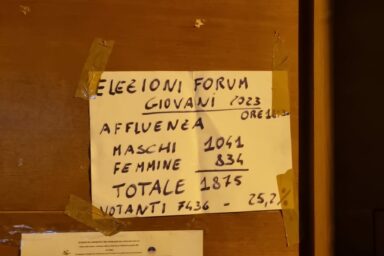 ELEZIONI FORUM
GIOVANI 2023
ORE
AFFLUENZA
MASCHI 1041
FEMMINE 834
TOTALE 1875
VOTANTI 7436 - 25,2%